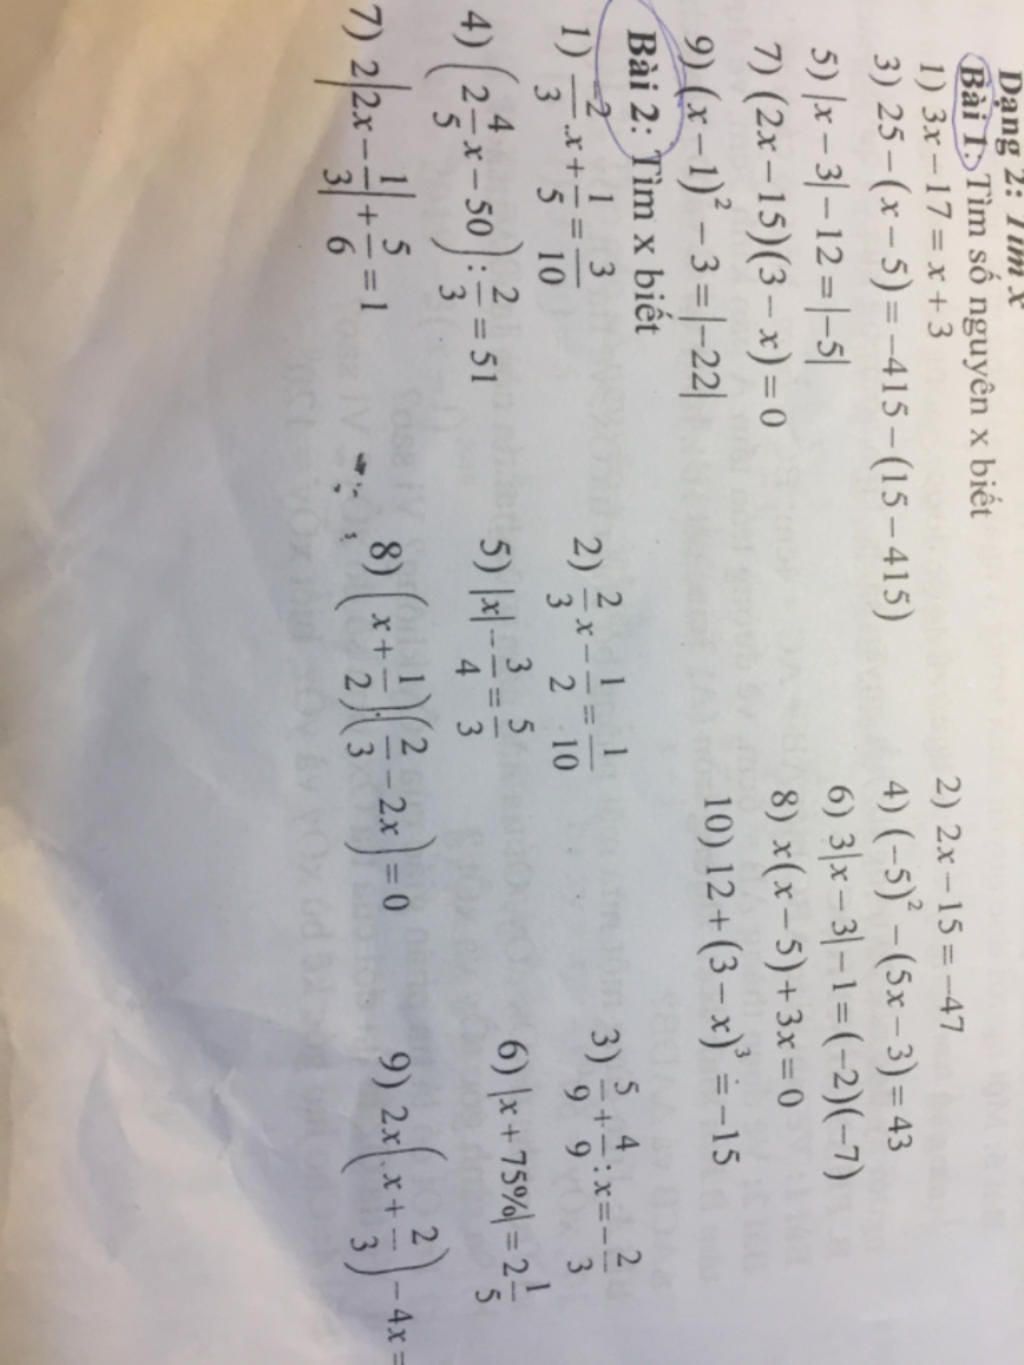 Dạng 2: Tìm x
Bài 1: Tìm số nguyên x biết
1) 3x − 17 = x + 3 2) 2x − 15 = −47
3) 25 − (x − 5) = −415 − (15 − 415) 4) (−5)² − (5x − 3) = 43
5) |x − 3| − 12 = |−5| 6) 3|x − 3| − 1 = (−2)(−7)
7) (2x − 15)(3 − x) = 0 8) x(x − 5) + 3x = 0
9) (x − 1)² − 3 = |−22| 10) 12 + (3 − x)³ = −15
Bài 2: Tìm x biết
1) −2/3 .x + 1/5 = 3/10 2) 2/3 x − 1/2 = 1/10 3) 5/9 + 4/9 : x = −2/3
4) (2 4/5 x − 50) : 2/3 = 51 5) |x| − 3/4 = 5/3 6) |x + 75%| = 2 1/5
7) 2|2x − 1/3| + 5/6 = 1 8) (x + 1/2).(2/3 − 2x) = 0 9) 2x(x + 2/3) − 4x =